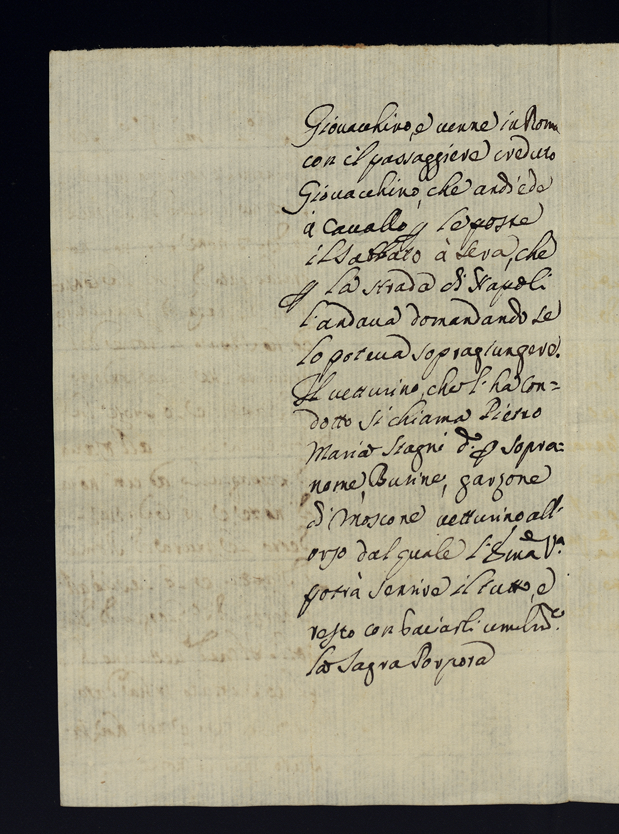 Giovacchino, e venne in Roma
con il passaggiere creduto
Giovacchino, che andiede
à Cavallo p le poste
il Sabbato à sera, che
p la strada di Napoli
l'andava domandando se
lo poteva sopragiungere.
Il vetturino, che l'ha con=
dotto si chiama Pietro
Maria Stagni d.o p sopra=
nome, Burine, garzone
di Moscone vetturino all'
orso dal quale l' Em.a V.a
potrà sentire il tutto, e
resto con baciarli umilm.e
la Sagra Porpora